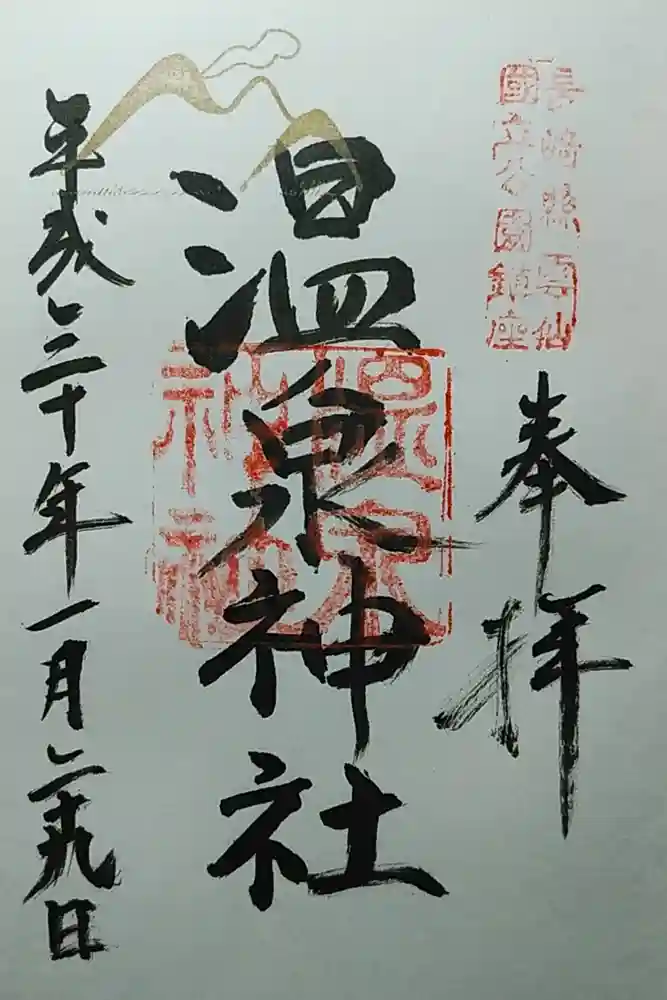 長崎縣雲仙
國立公園鎮座
奉拝
温泉神社
温泉
神社
平成三十年一月二十九日